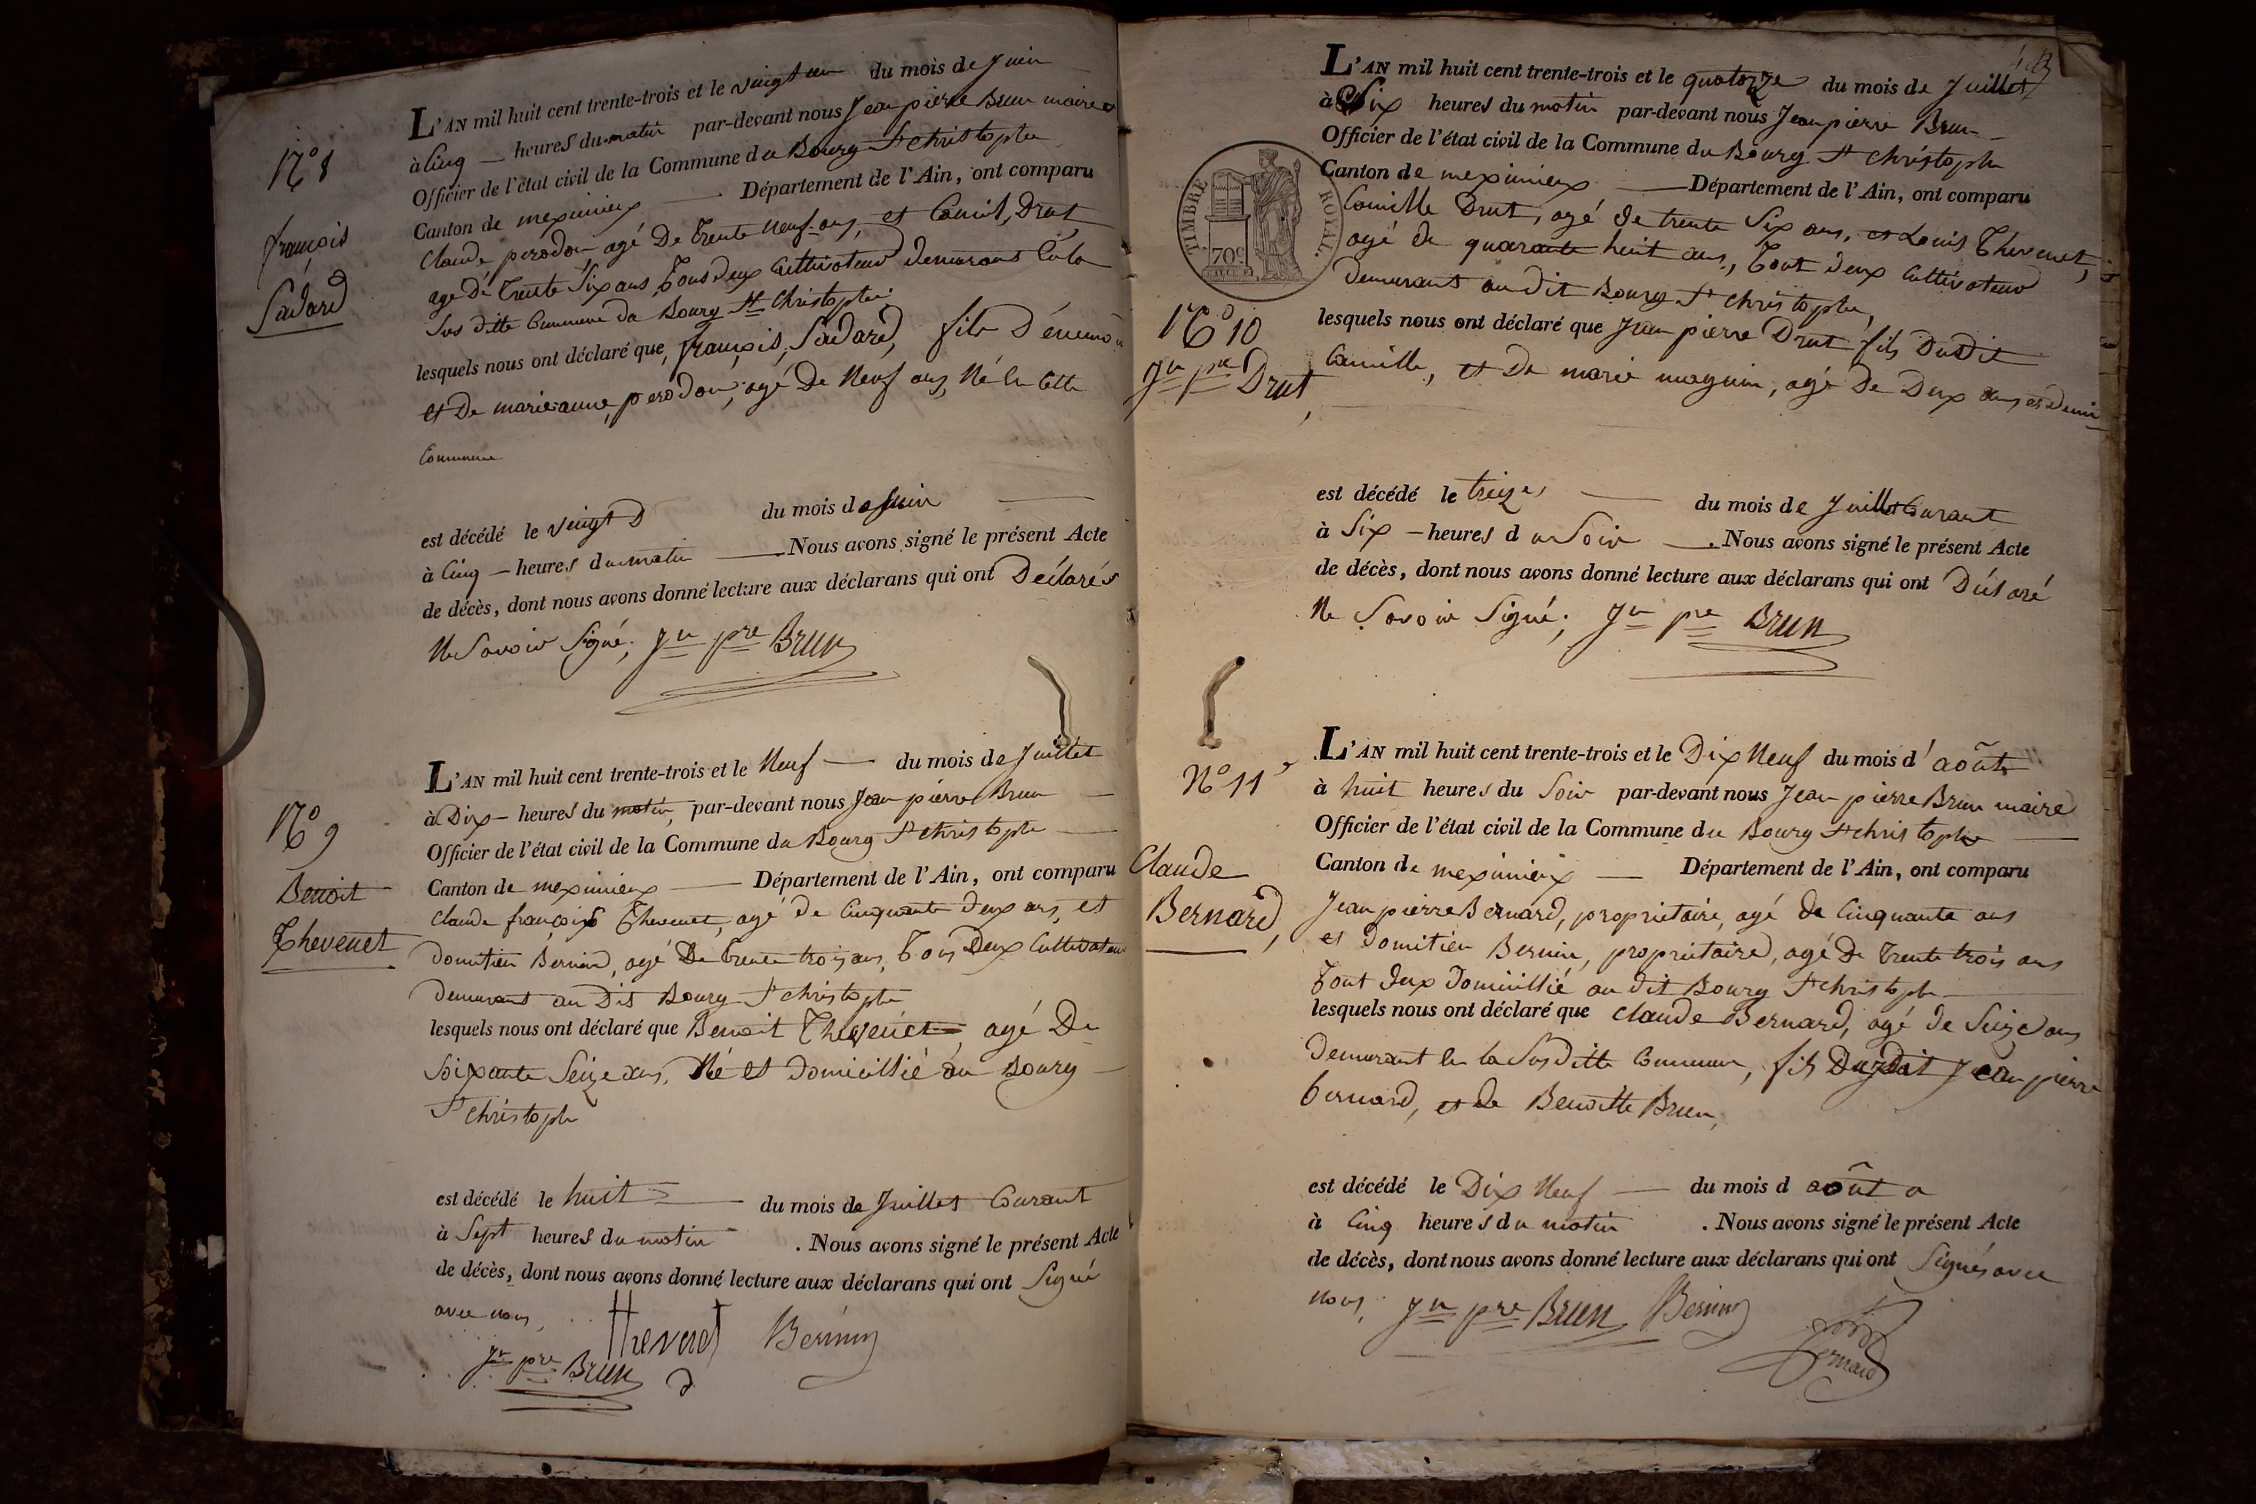 N° 8
françois
Sadard
L'AN mil huit cent trente-trois et le vingt un du mois de Juin
à Cinq heures du matin par-devant nous Jean pierre Brun maire
Officier de l'état civil de la Commune du Bourg St christophe
Canton de meximieux Département de l'Ain, ont comparu
Claude perodon agé De Trente Neuf ans, et Camil, Drut
agé de Trente Six ans, Tous deux Cultivateur demurant En la
Sus ditte Commune du Bourg St Christophe
lesquels nous ont déclaré que, françois, Sadard, fils D'
et De marie anne, perodon, agé De Neuf ans, Né En Cette
Commune
est décédé le vingt du mois de Juin
à Cinq heures du matin Nous avons signé le présent Acte
de décès, dont nous avons donné lecture aux déclarans qui ont Déclarés
Ne Savoir Signé; Jn pre Brun
N° 9
Benoit
Thevenet
L'AN mil huit cent trente-trois et le Neuf du mois de Juillet
à Dix heures du matin, par-devant nous Jean pierre Brun
Officier de l'état civil de la Commune du Bourg St christophe
Canton de meximieux Département de l'Ain, ont comparu
Claude françois Thevenet, agé de Cinquante deux ans, et
Domitien Bernin, agé De trente trois ans, Tous Deux Cultivateur
Demurant au Dit Bourg St christophe
lesquels nous ont déclaré que Benoit Thevenet, agé De
Soixante Seize ans, Né et Domicillié au Bourg
St christophe
est décédé le huit du mois de Juillet Courant
à Sept heures du matin . Nous avons signé le présent Acte
de décès, dont nous avons donné lecture aux déclarans qui ont Signé
avec nous,
Thevenet Bernin
Jn pre Brun
TIMBRE ROYAL.
70c
N° 10
Jn pre Drut
L'AN mil huit cent trente-trois et le quatorze du mois de Juillet
à Six heures du matin par-devant nous Jean pierre Brun
Officier de l'état civil de la Commune du Bourg St christophe
Canton de meximieux Département de l'Ain, ont comparu
Camille Drut, agé de trente Six ans, et Louis Thevenet,
agé de quarante huit ans, Tout deux Cultivateur
Demurant au Dit Bourg St christophe,
lesquels nous ont déclaré que Jean pierre Drut fils Dudit
Camille, et De marie maguin, agé De Deux ans et Demis
est décédé le treize du mois de Juillet Courant
à Six heures du Soir . Nous avons signé le présent Acte
de décès, dont nous avons donné lecture aux déclarans qui ont Déclaré
Ne Savoir Signé; Jn pre Brun
N° 11
Claude
Bernard,
L'AN mil huit cent trente-trois et le Dix Neuf du mois d'août
à huit heures du Soir par-devant nous Jean pierre Brun maire
Officier de l'état civil de la Commune du Bourg St christophe
Canton de meximieux Département de l'Ain, ont comparu
Jean pierre Bernard, propriétaire, agé de Cinquante ans
et Domitien Bernin, propriétaire, agé De Trente trois ans
Tout deux Domicillié au dit Bourg St christophe
lesquels nous ont déclaré que Claude Bernard, agé de Seize ans
Demurant En la Sus Ditte Commune, fils Dudit Jean pierre
Bernard, et de Benoitte Brun,
est décédé le Dix Neuf du mois d août a
à Cinq heures du matin . Nous avons signé le présent Acte
de décès, dont nous avons donné lecture aux déclarans qui ont Signés avec
nous, Jn pre Brun Bernin
Bernard